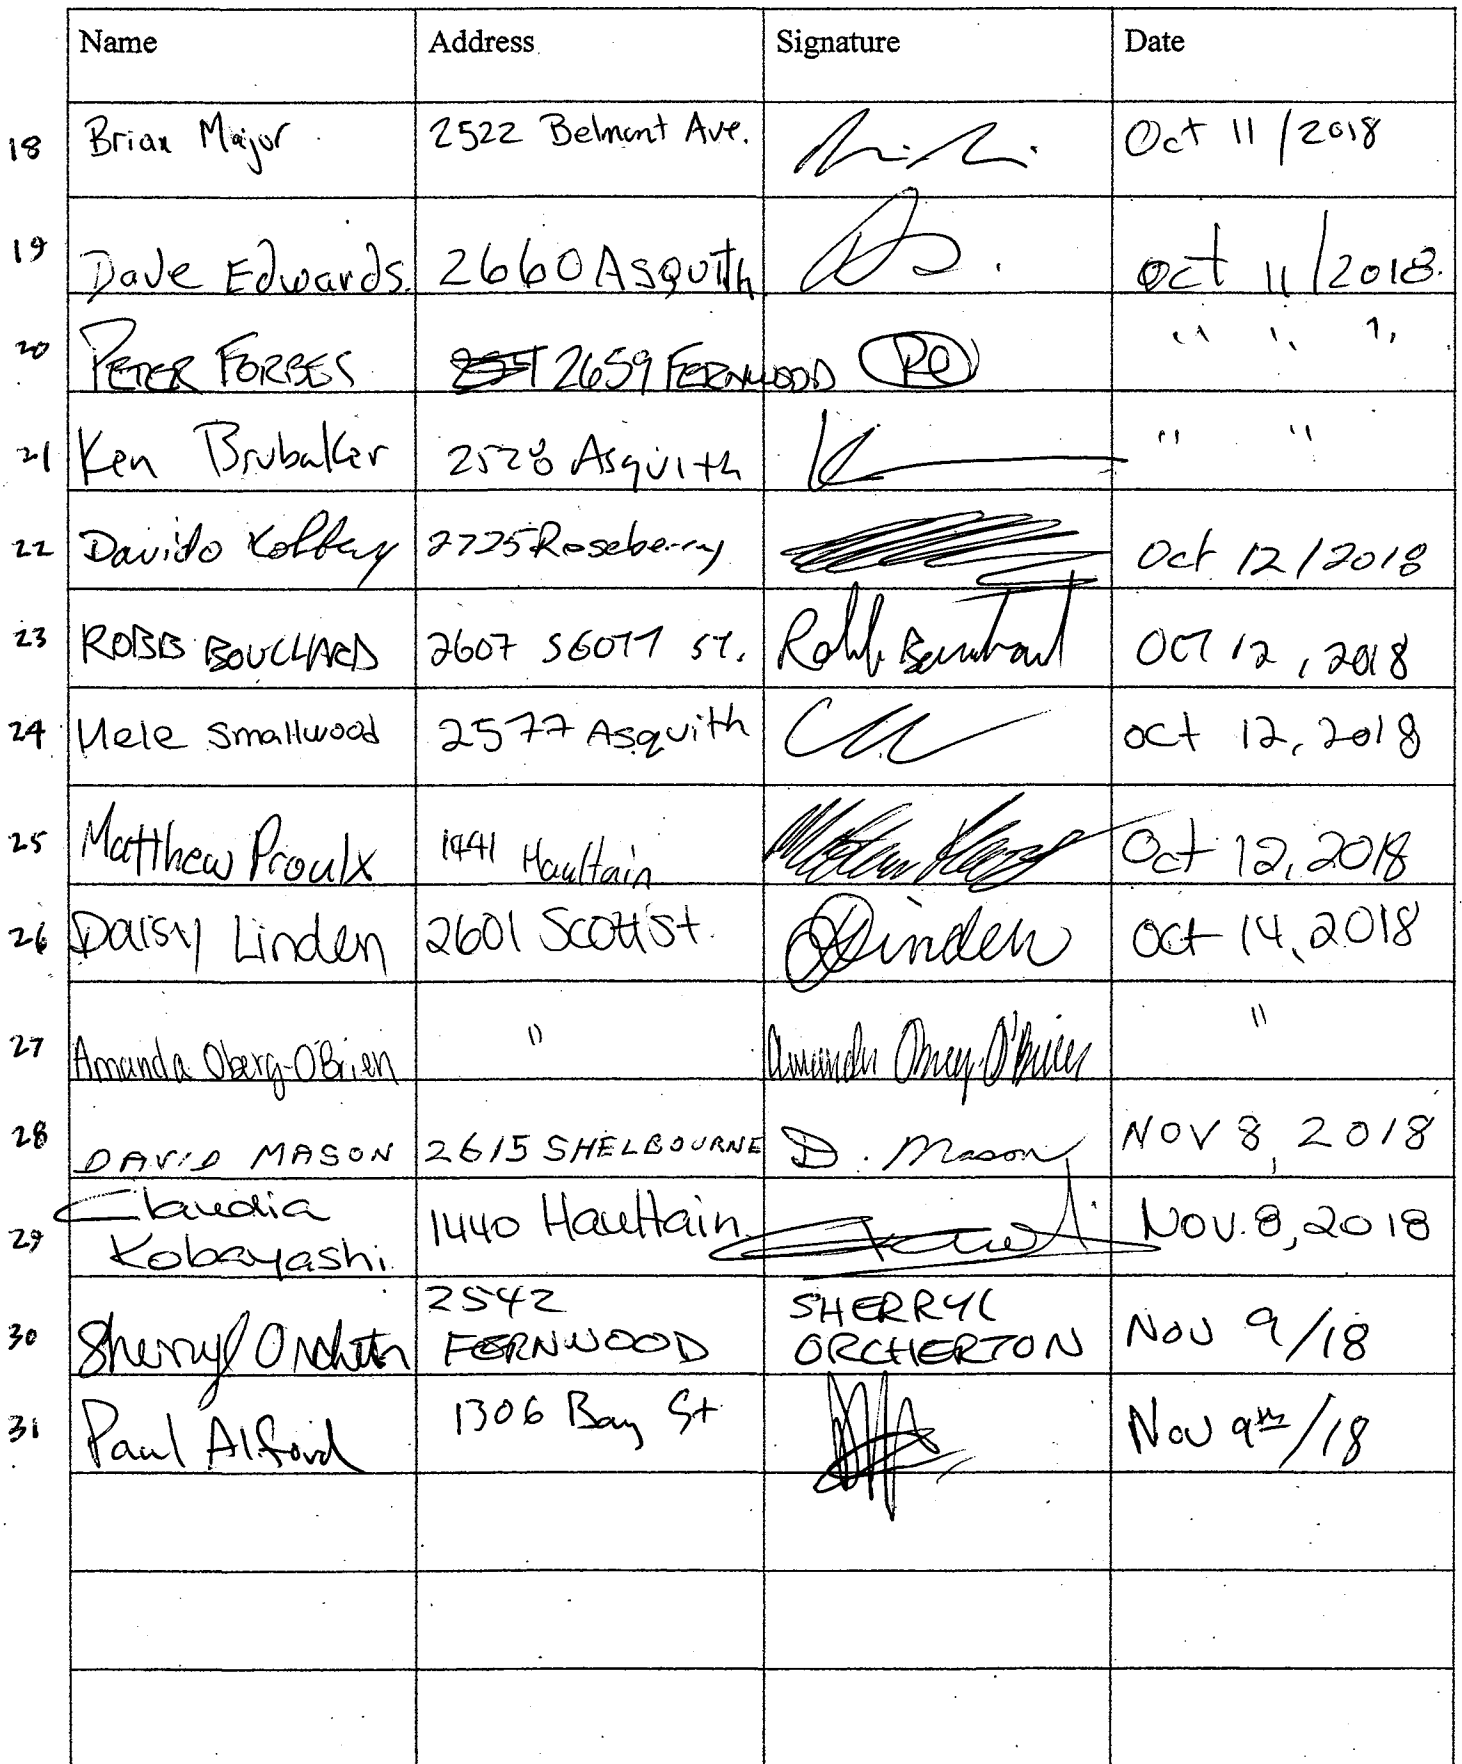 Name Address Signature Date
18 Brian Major 2522 Belmont Ave. Oct 11/2018
19 Dave Edwards. 2660 Asquith Oct 11/2018.
20 PETER FORBES 2659 FERNWOOD " " "
21 Ken Brubaker 2528 Asquith " "
22 Davido 2725 Roseberry Oct 12/2018
23 ROBB BOUCHARD 2607 SCOTT ST. OCT 12, 2018
24 smallwood 2577 Asquith Oct 12, 2018
25 Matthew Proulx 1441 Haultain Oct 12, 2018
26 Daisy Linden 2601 Scott St. Linden Oct 14, 2018
27 Amanda Oberg-O'Brien " Amanda O'Brien "
28 DAVID MASON 2615 SHELBOURNE D. Mason NOV 8, 2018
29 Claudia Kobayashi 1440 Haultain Nov. 8, 2018
30 Sherryl Orcherton 2542 FERNWOOD SHERRYL ORCHERTON Nov 9/18
31 Paul Alford 1306 Bay St Nov 9th/18